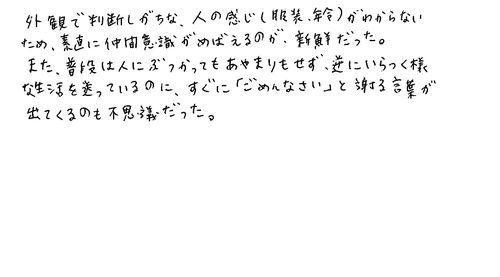 外観で判断しがちな、人の感じ(服装、年令)がわからない
ため、素直に仲間意識がめばえるのが、新鮮だった。
また、普段は人にぶつかってもあやまりもせず、逆にいらつく様
な生活を送っているのに、すぐに「ごめんなさい」と謝る言葉が
出てくるのも不思議だった。